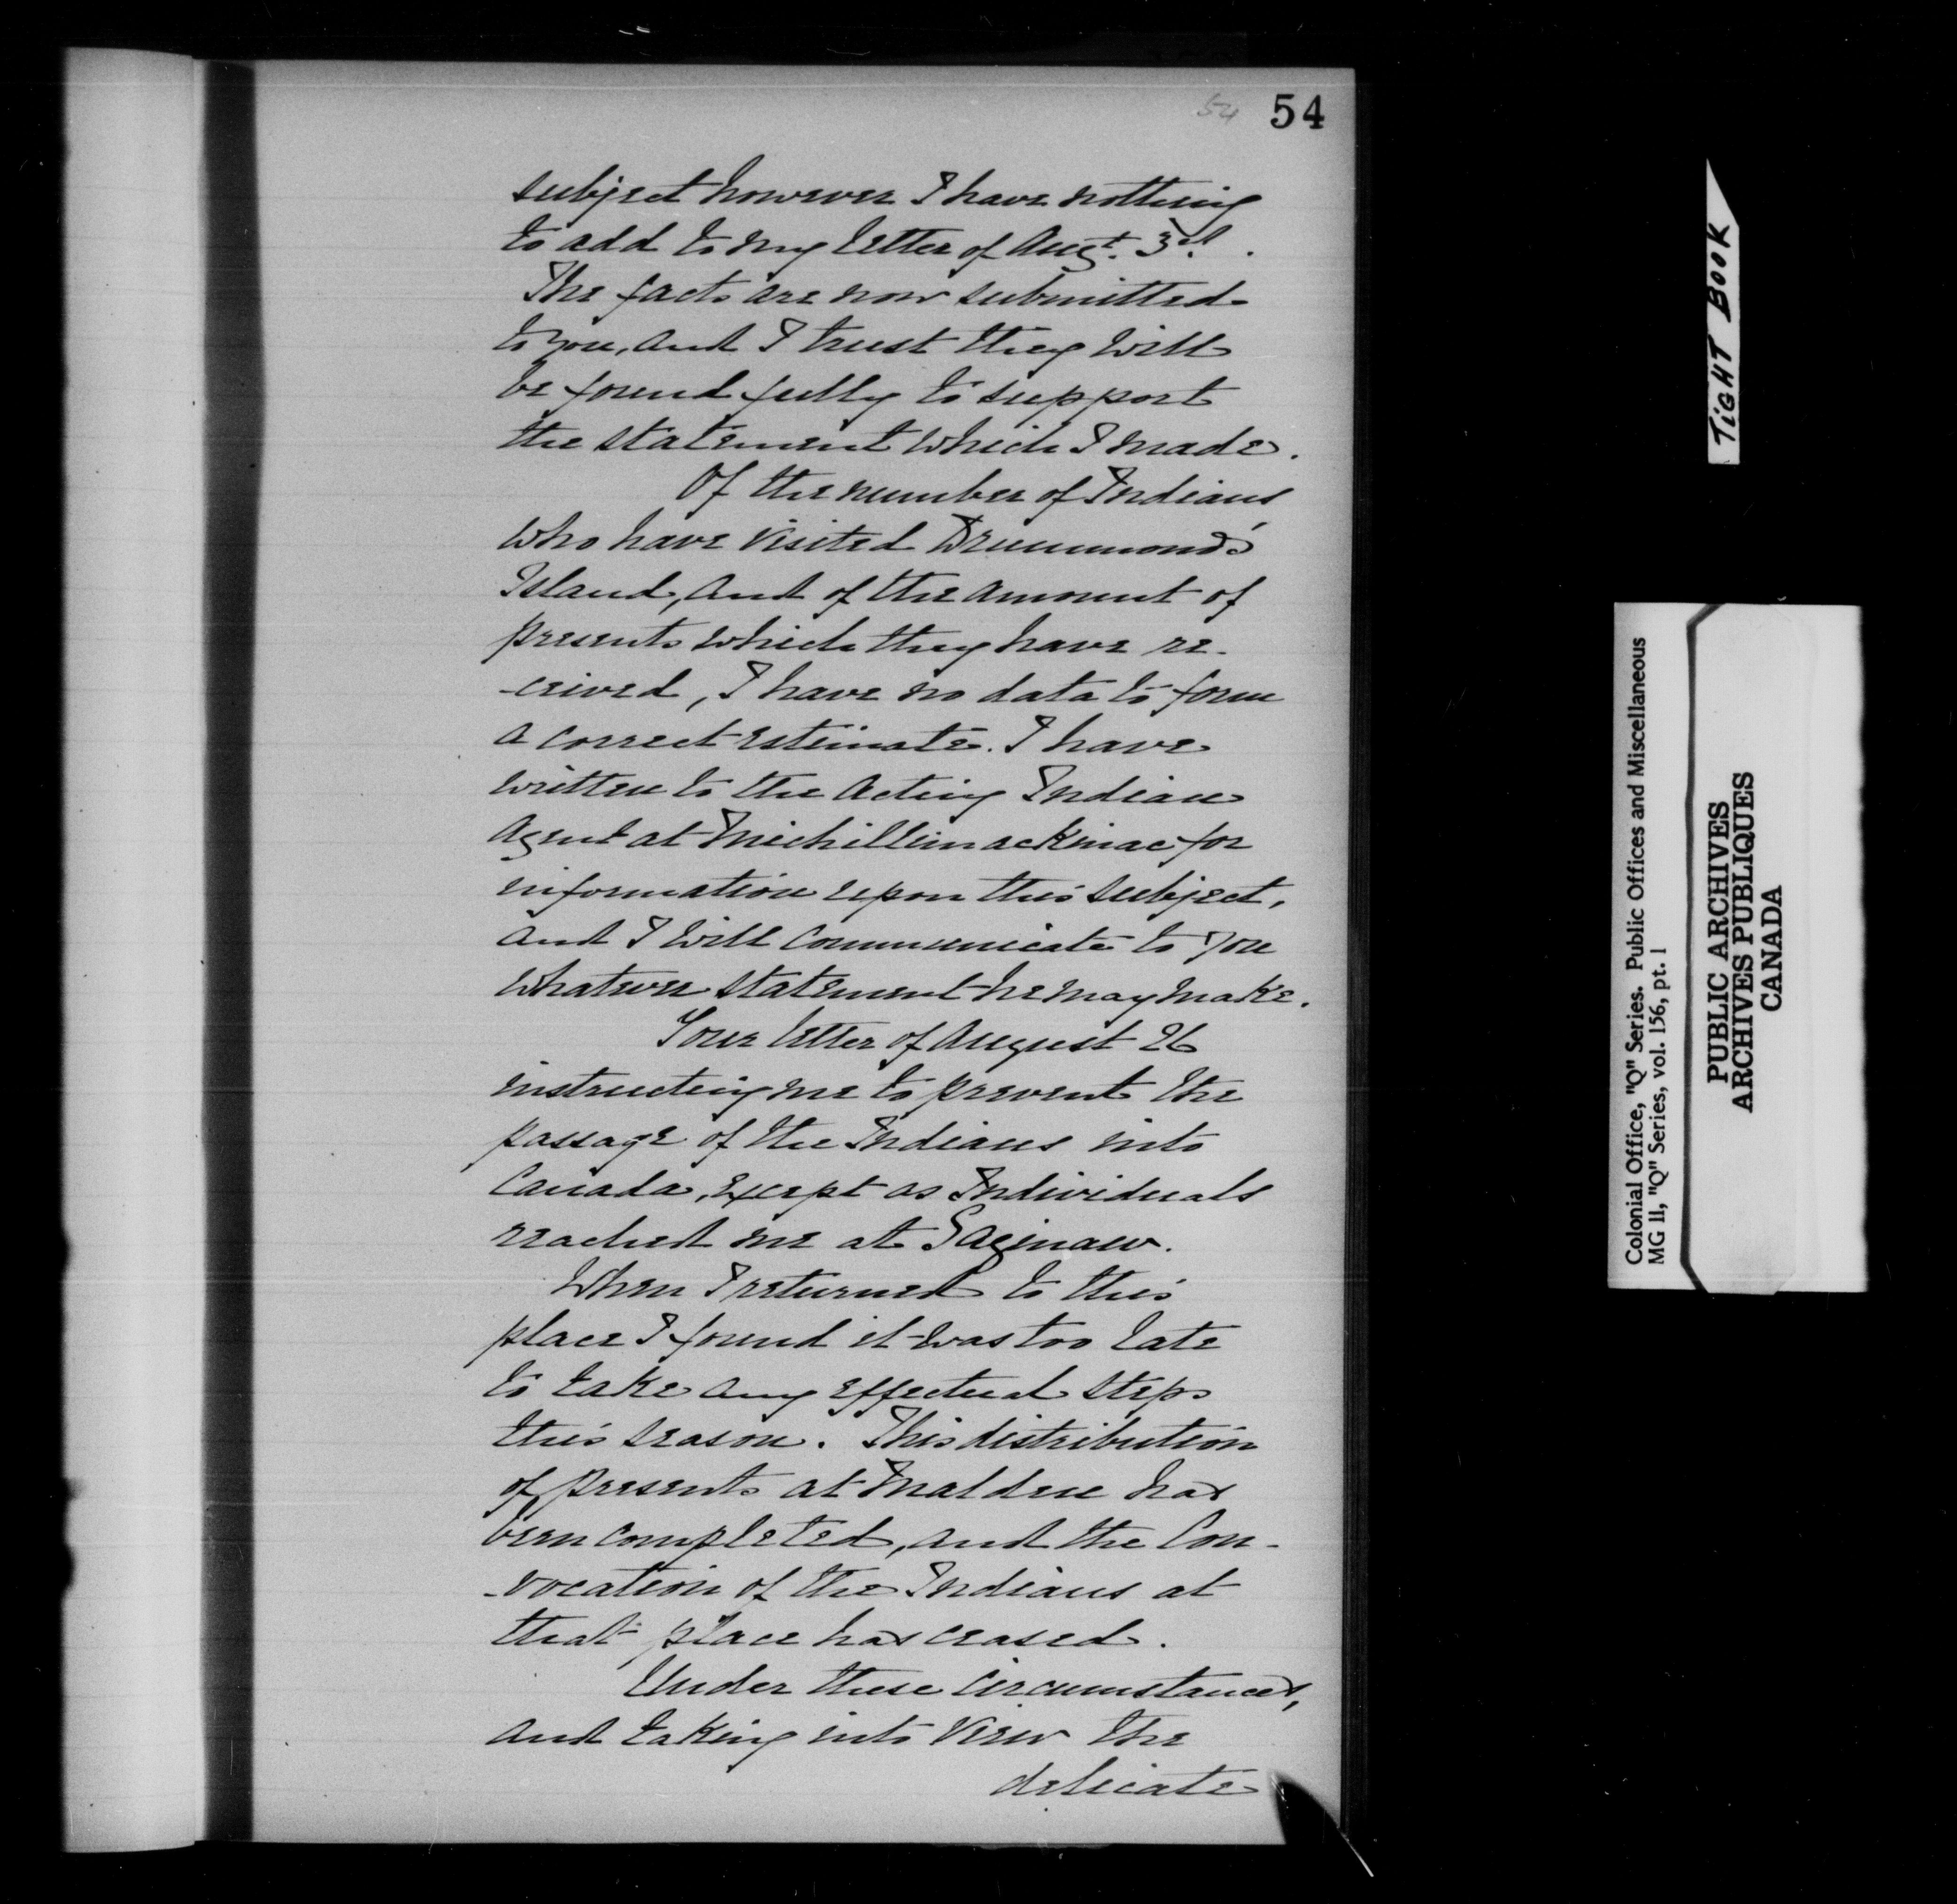 54 54
subject however I have nothing
to add to my letter of Augt. 3d.
The facts are now submitted
to you, and I trust they will
be found fully to support
the statement which I made.
Of the number of Indians
who have visited Drummond's
Island, and of the amount of
presents which they have re-
-ceived, I have no data to form
a correct estimate. I have
written to the Acting Indian
Agent at Michillimackinac for
information upon this subject,
and I will communicate to you
whatever statement he may make.
Your letter of August 26
instructing me to prevent the
passage of the Indians into
Canada, except as Individuals
reached me at Saginaw.
When I returned to this
place I found it was too late
to take any effectual steps
this season. This distribution
of presents at Malden has
been completed, and the Con-
-vocation of the Indians at
that place has ceased.
Under these circumstances,
and taking into view the
delicate
TIGHT BOOK
Colonial Office, "Q" Series. Public Offices and Miscellaneous
MG 11, "Q" Series, vol. 156, pt. 1
PUBLIC ARCHIVES
ARCHIVES PUBLIQUES
CANADA